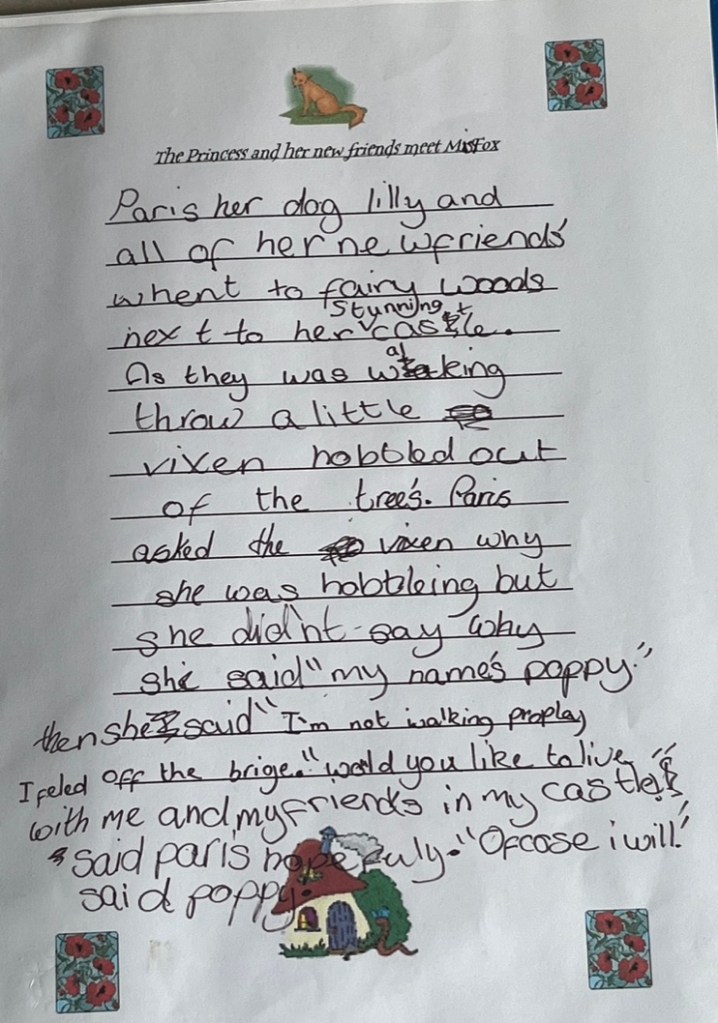 The Princess and her new friends meet MrsFox
Paris her dog lilly and
all of her newfriends
whent to fairy woods
stunning
next to her castle.
As they was walking
throw a little
vixen hobbled out
of the tree's. Paris
asked the vixen why
she was hobbleing but
she did'nt say why
she said "my name's poppy."
then she said "I'm not walking proplay
I feled off the brige." "would you like to live
with me and my friends in my castle?"
said paris hopefuly. "Ofcose i will."
said poppy.